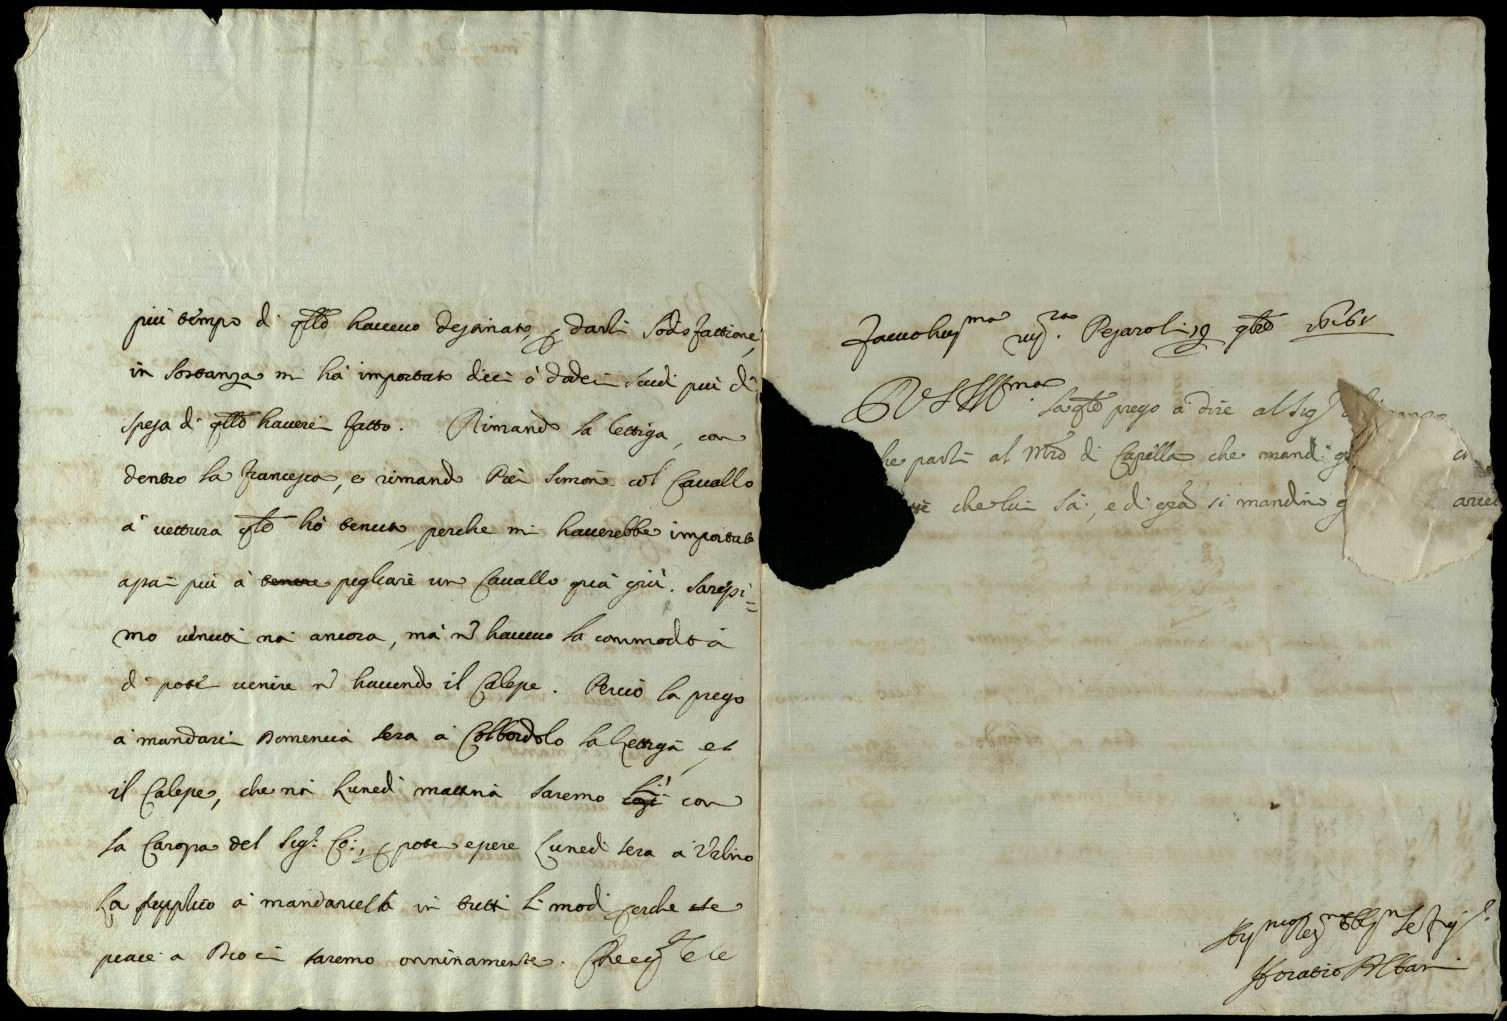 più tempo di qllo havevo destinato, p darli sodisfattione,
in sostanza mi hà importato dieci ò dodeci scudi più di
spesa di qllo haverei fatto. Rimando la lettiga, con
dentro la Francesca, e rimando Pier Simone col Cavallo
à vettura qle hò tenuto perche mi haverebbe importato
assai più à tenere pigliare un Cavallo quà giù. Saressi=
mo venuti noi ancora, mà nō havevo la commodità
di poter venire nō havendo il Calesse. Perciò la prego
à mandarci Domenica sera à Colbordolo la Lettiga et
il Calesse, che noi Lunedì mattina saremo lì con
la Carozza del Sigr Co:, p poter essere Lunedì sera à Urbino
La supplico à mandarcela in tutti li modi perche se
piace a Dio ci saremo onninamente. Che
Pesaro li 19 1661
VS Illma la prego à dire al Sigr
che parli al Mro di Capella che mandi
che lui sà, e di grā si mandino
Horatio Albani